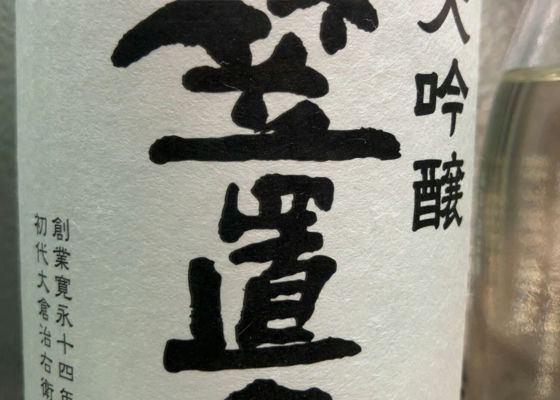 大吟醸
笠置
創業寛永十四年
初代大倉治右衛